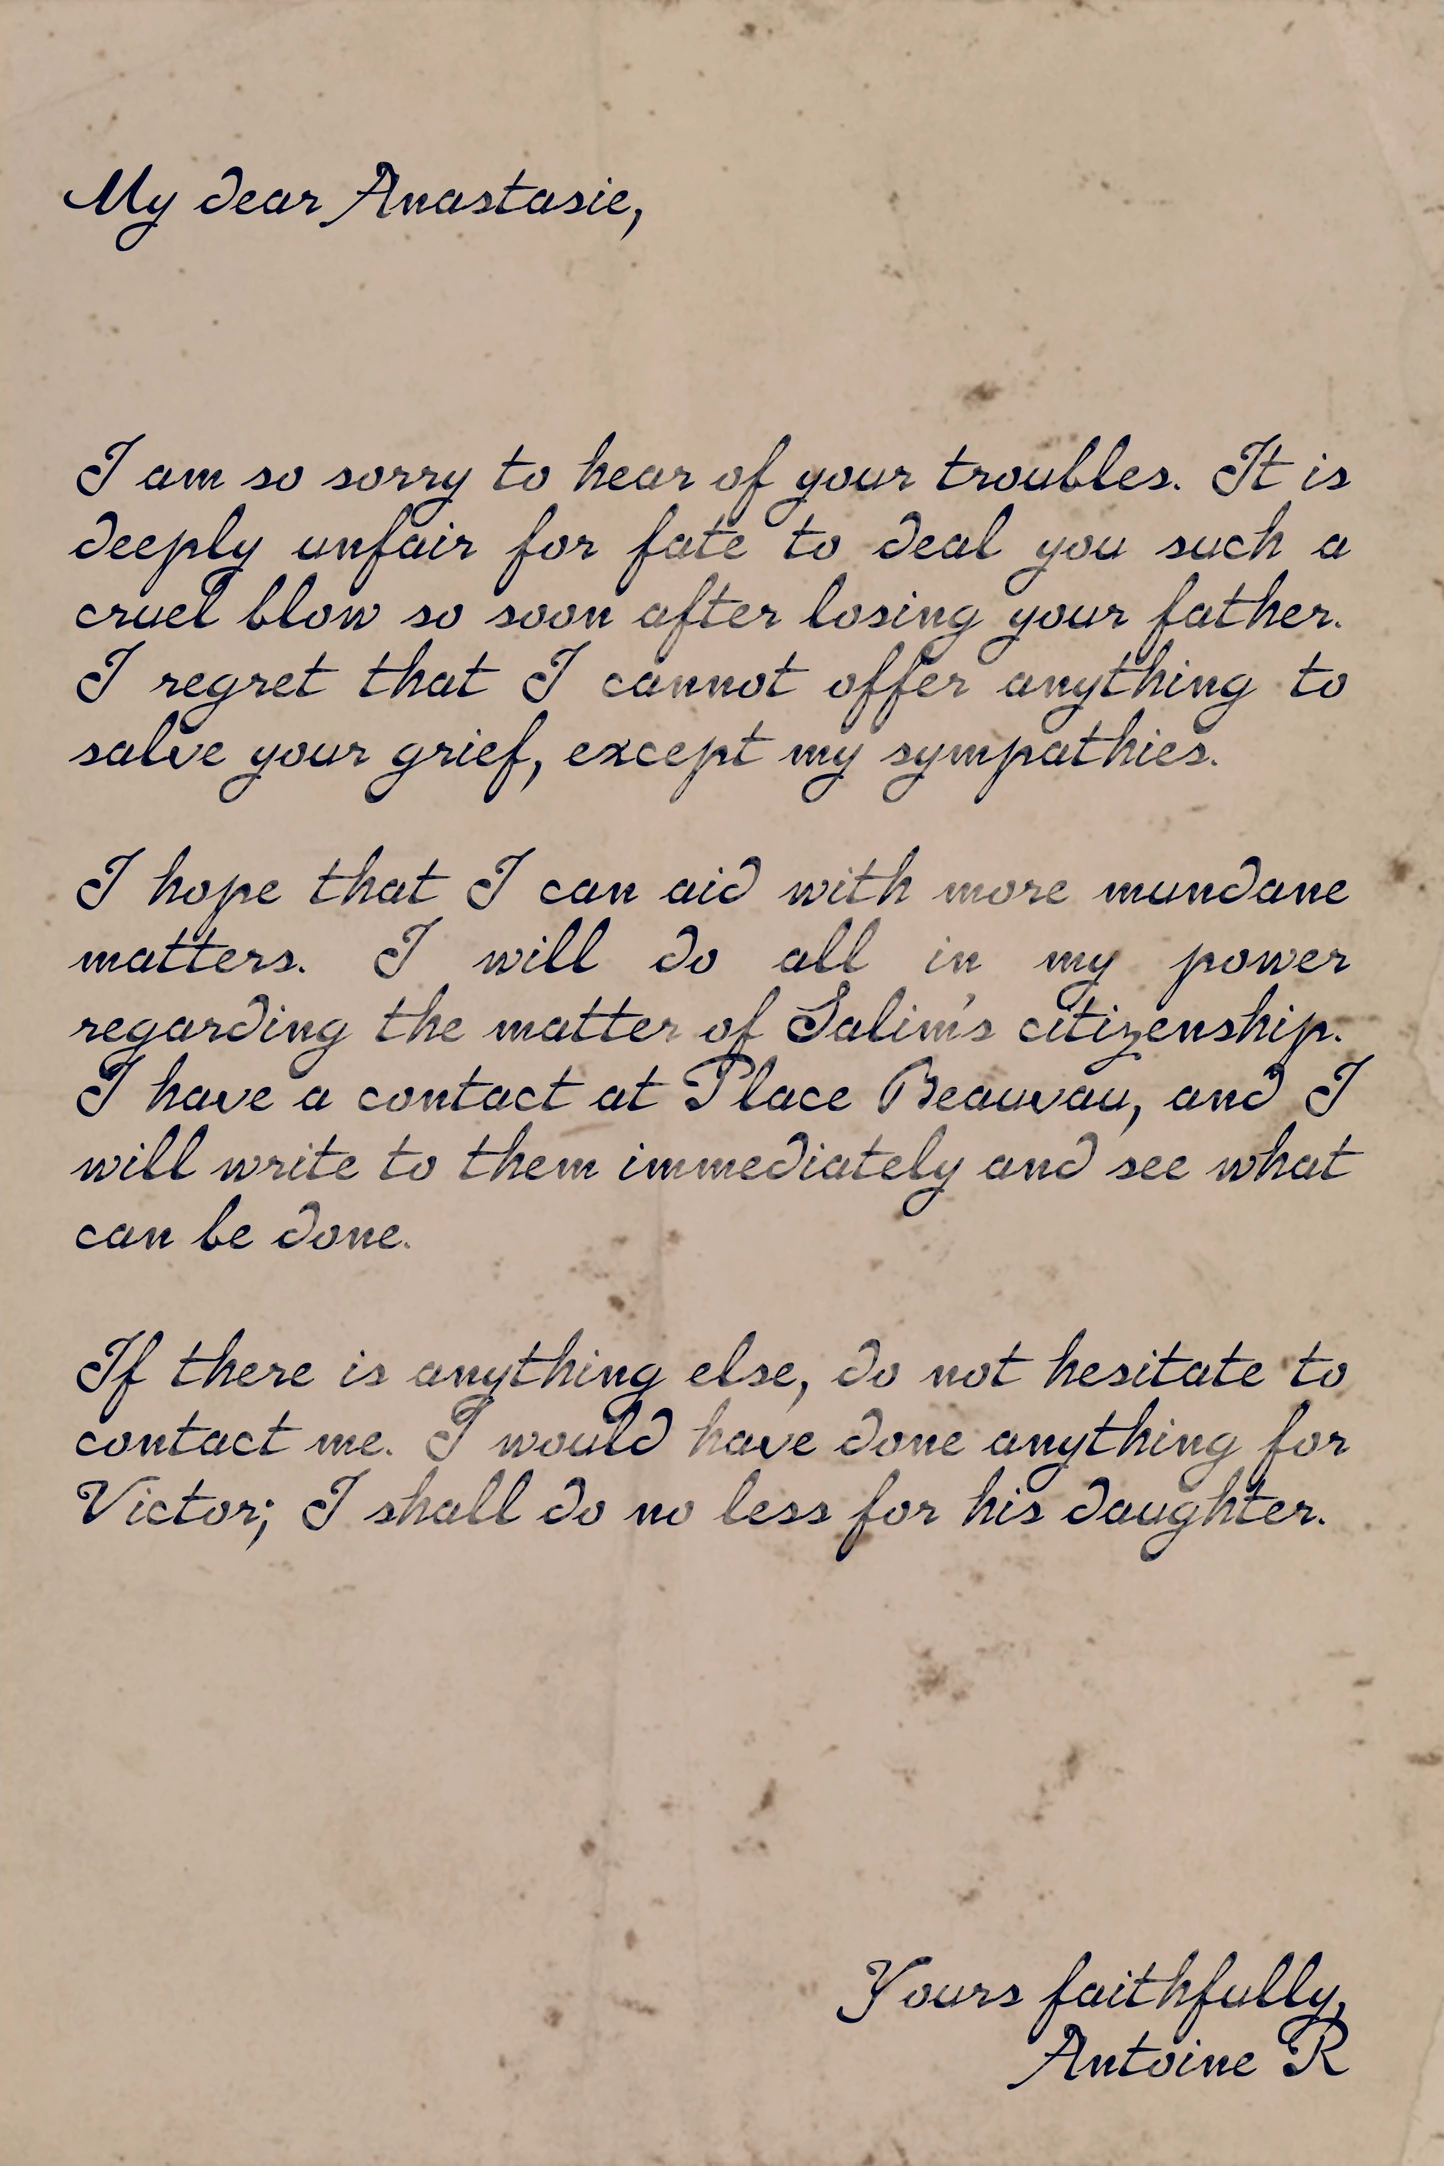 My dear Anastasie,
I am so sorry to hear of your troubles. It is
deeply unfair for fate to deal you such a
cruel blow so soon after losing your father.
I regret that I cannot offer anything to
salve your grief, except my sympathies.
I hope that I can aid with more mundane
matters. I will do all in my power
regarding the matter of Salim's citizenship.
I have a contact at Place Beauvau, and I
will write to them immediately and see what
can be done.
If there is anything else, do not hesitate to
contact me. I would have done anything for
Victor; I shall do no less for his daughter.
Yours faithfully,
Antoine R